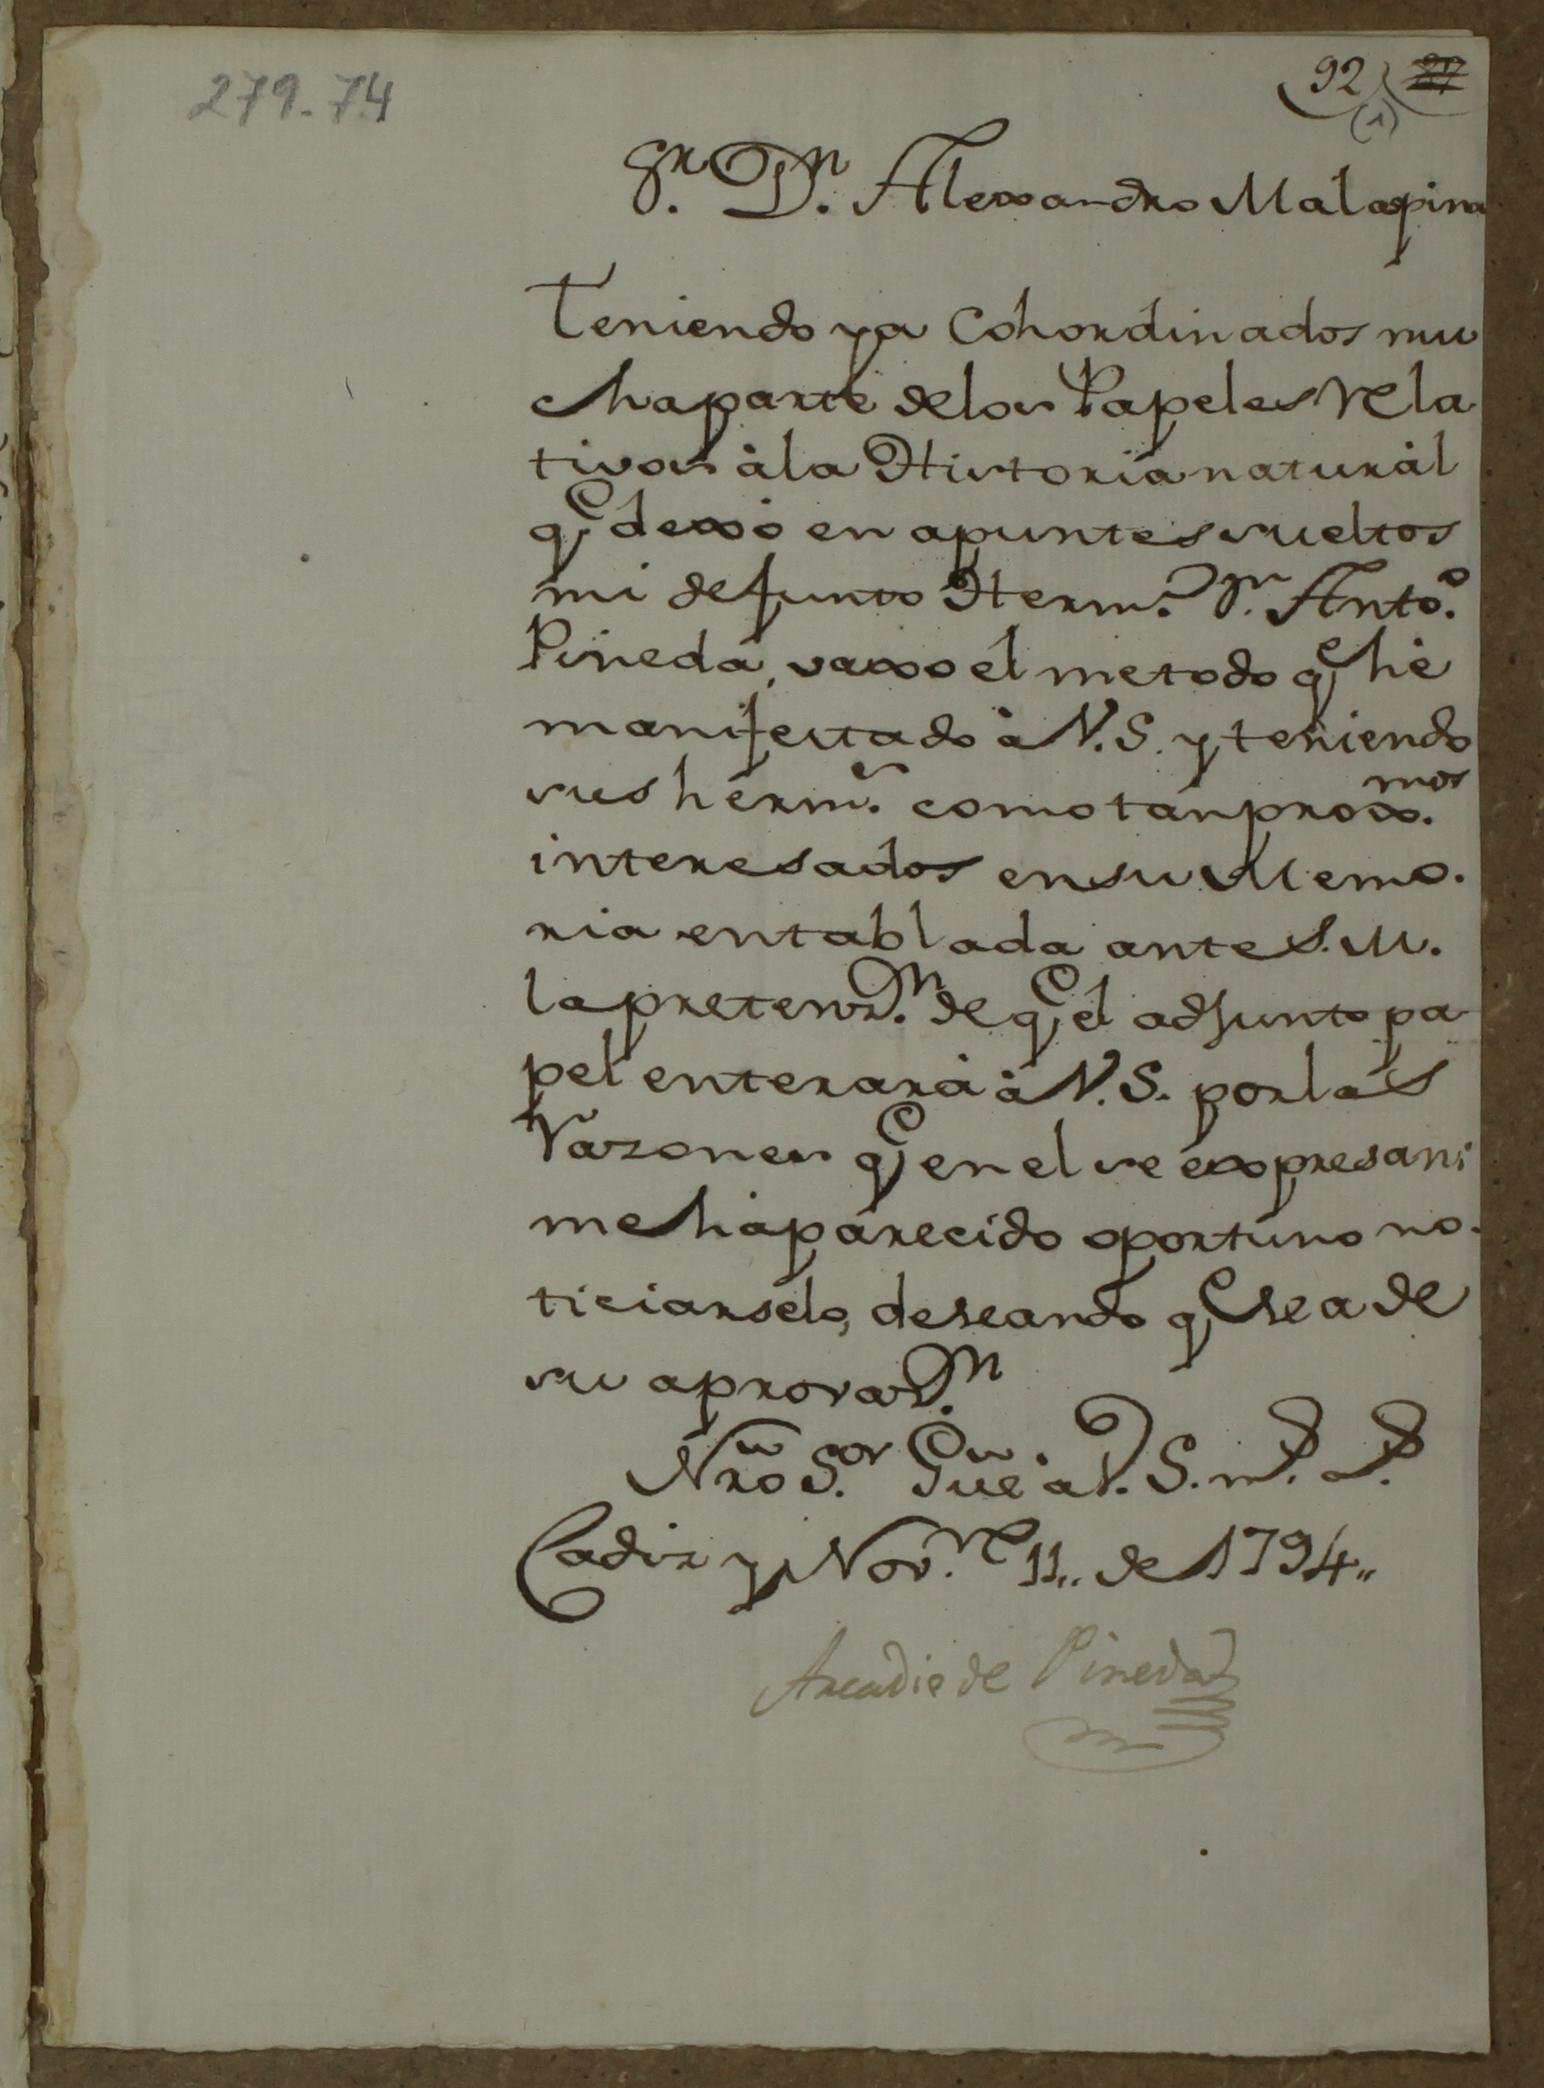 279-74
92 27
(1)
Sr. Dn. Alexandro Malaspina
Teniendo ya Cohordinados mu
cha parte de los Papeles Rela
tivos à la Historia naturàl
qe. dexò en apuntes sueltos
mi defunto Hermo. Dn. Anto.
Pineda, vaxo el metodo qe he
manifestado à V.S. y teniendo
sus herms. como tan proxmos.
interesados en su Memo.
ria entablada ante S.M.
la pretenzn. de qe el adjunto pa
pel enterarà à V.S. por las
Razones qe en el se expresan;
me hà parecido oportuno no.
ticiarselo, deseando qe sea de
su aprovazn.
Nro Sor. Gue à V.S. ms. as.
Cadiz y Novre. 11,, de 1794,,
Arcadio de Pineda